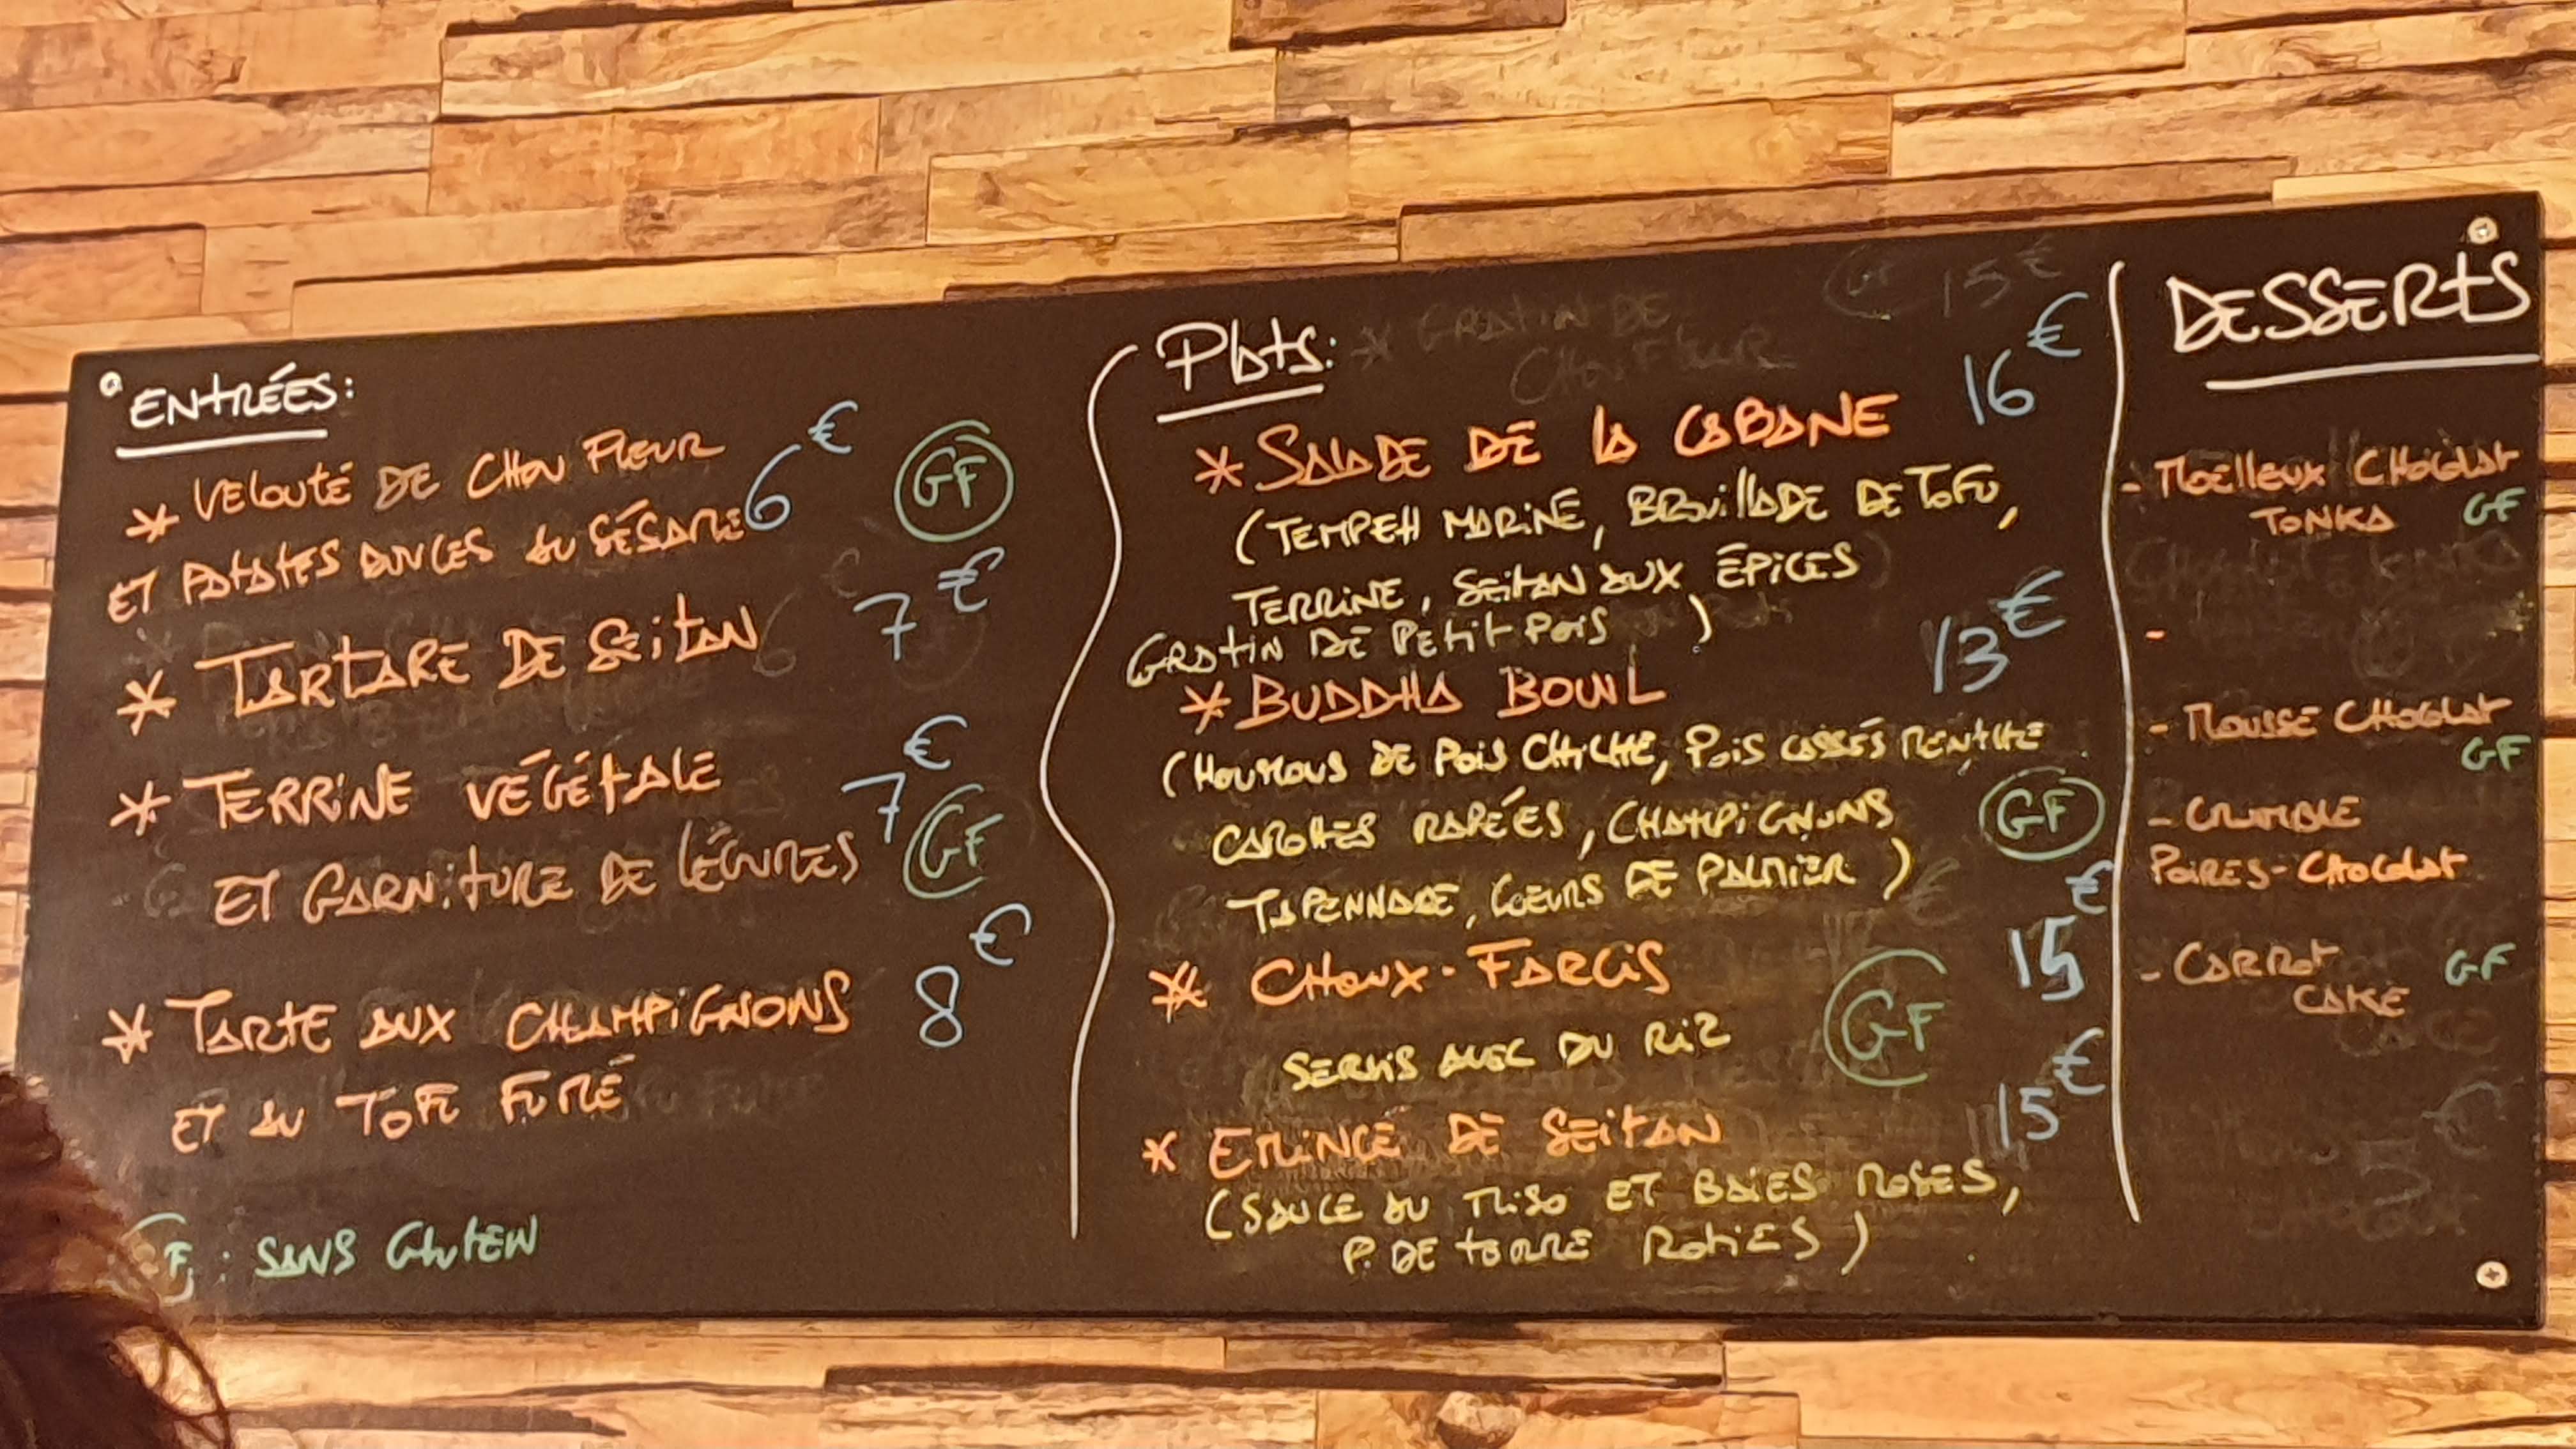 ENTRÉES:
* VELOUTÉ DE CHOU FLEUR
ET PATATES DOUCES AU SÉSAME 6€ GF
* TARTARE DE SEITAN 7€
* TERRINE VÉGÉTALE 7€
ET GARNITURE DE LÉGUMES GF
* TARTE AUX CHAMPIGNONS 8€
ET AU TOFU FUMÉ
GF : SANS GLUTEN
Plats:
* GRATIN DE GF 15€
CHOU FLEUR
* SALADE DE LA CABANE 16€
(TEMPEH MARINÉ, BROUILLADE DE TOFU,
TERRINE, SEITAN AUX ÉPICES
GRATIN DE PETIT POIS )
* BUDDHA BOWL 13€
(HOUMOUS DE POIS CHICHE, POIS CASSÉS MENTHE
CAROTTES RAPÉES, CHAMPIGNONS GF
TAPENNADE, COEURS DE PALMIER )
* CHOUX-FARCIS 15€
SERVIS AVEC DU RIZ GF
* EMINCÉ DE SEITAN 15€
(SAUCE AU MISO ET BAIES ROSES,
P. DE TERRE ROTIES )
DESSERTS
- MOELLEUX CHOCOLAT
TONKA GF
-
- MOUSSE CHOCOLAT
GF
- CRUMBLE
POIRES-CHOCOLAT
- CARROT GF
CAKE